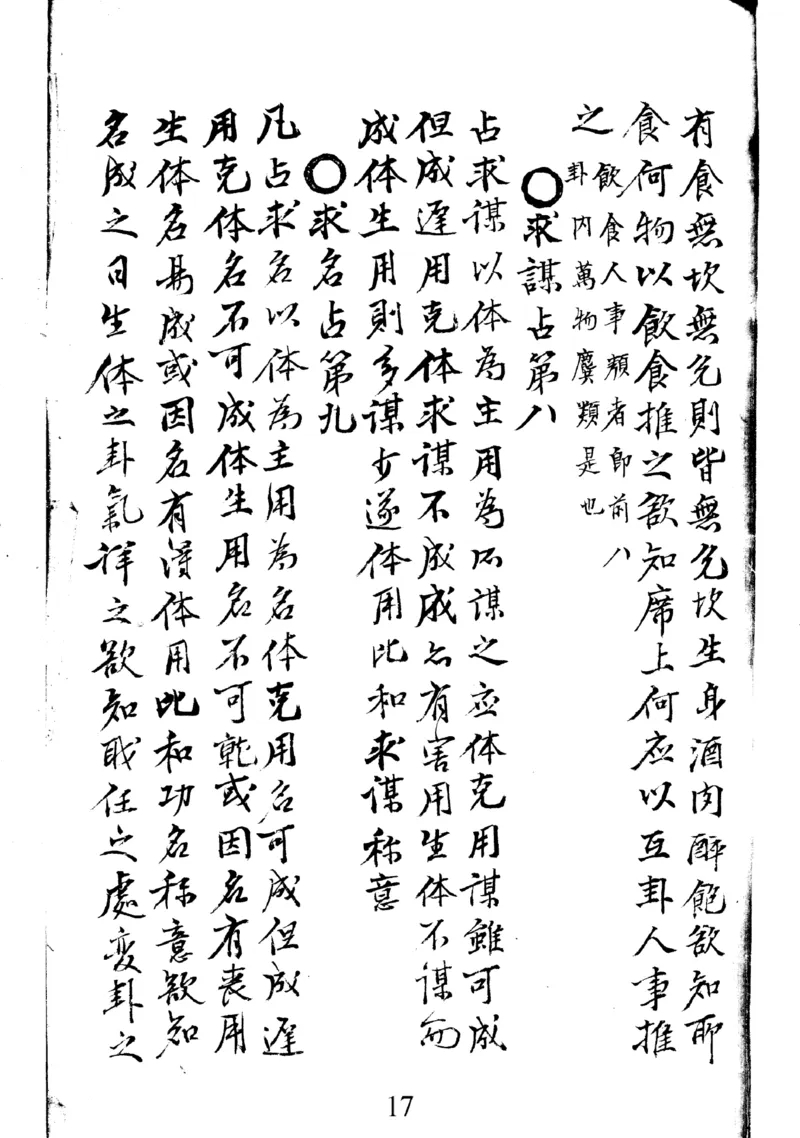 有食無坎無兌則皆無兌坎生身酒肉醉飽欲知所
食何物以飲食推之欲知席上何应以互卦人事推
之飲食人事類者即前八
卦内萬物屬類是也
〇求謀占第八
占求謀以体為主用為所謀之应体克用謀雖可成
但成遲用克体求謀不成成亦有害用生体不謀而
成体生用則多謀少遂体用比和求謀称意
〇求名占第九
凡占求名以体為主用為名体克用名可成但成遲
用克体名不可成体生用名不可乾或因名有喪用
生体名易成或因名有淂体用比和功名称意欲知
名成之日生体之卦氣詳之欲知職任之處変卦之
17